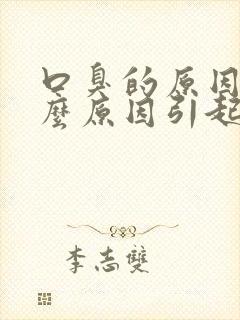 口臭的原因
麼原因引起
李志雙